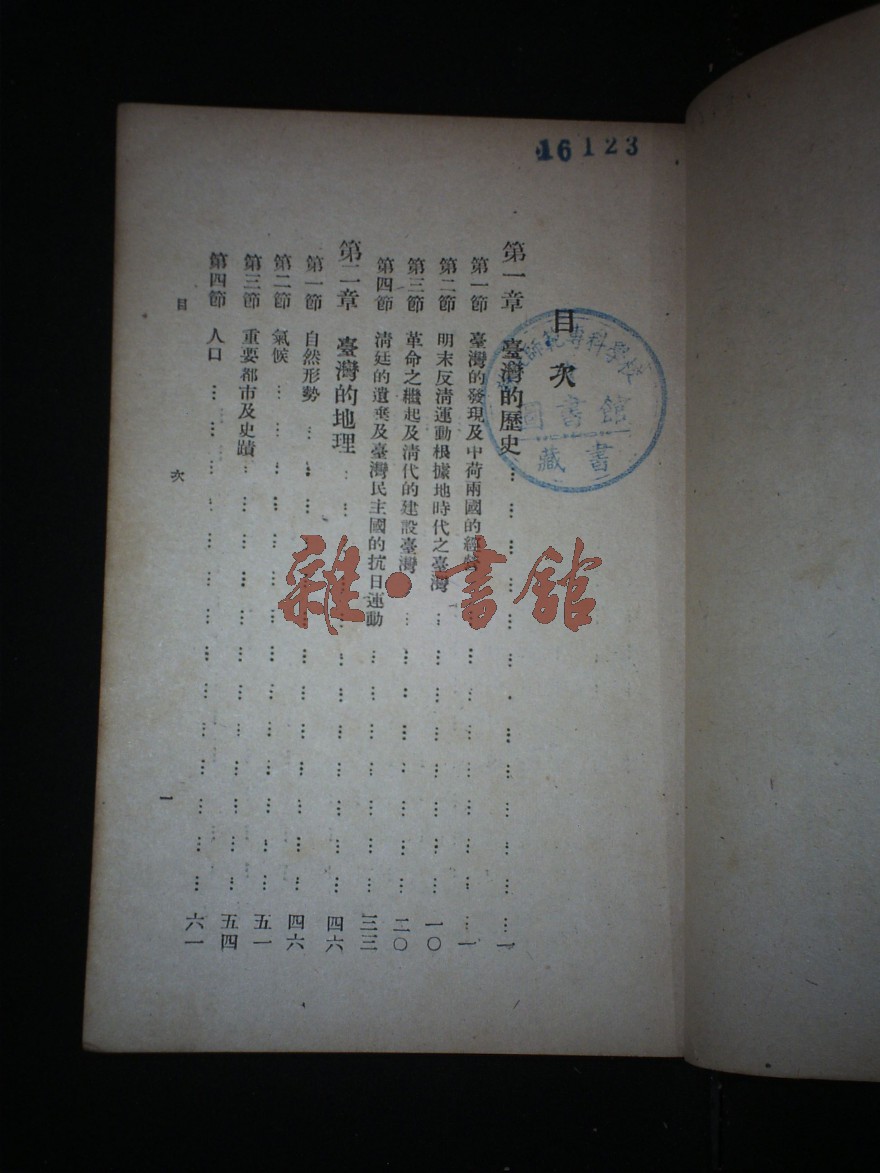 16123
目次
師範專科學校
圖書館
藏書
第一章 臺灣的歷史……一
第一節 臺灣的發現及中荷兩國的經營……一
第二節 明末反清運動根據地時代之臺灣……一〇
第三節 革命之繼起及清代的建設臺灣……二〇
第四節 清廷的遺棄及臺灣民主國的抗日運動……三三
第二章 臺灣的地理……四六
第一節 自然形勢……四六
第二節 氣候……五一
第三節 重要都市及史蹟……五四
第四節 人口……六一
目次 一
雜·書館